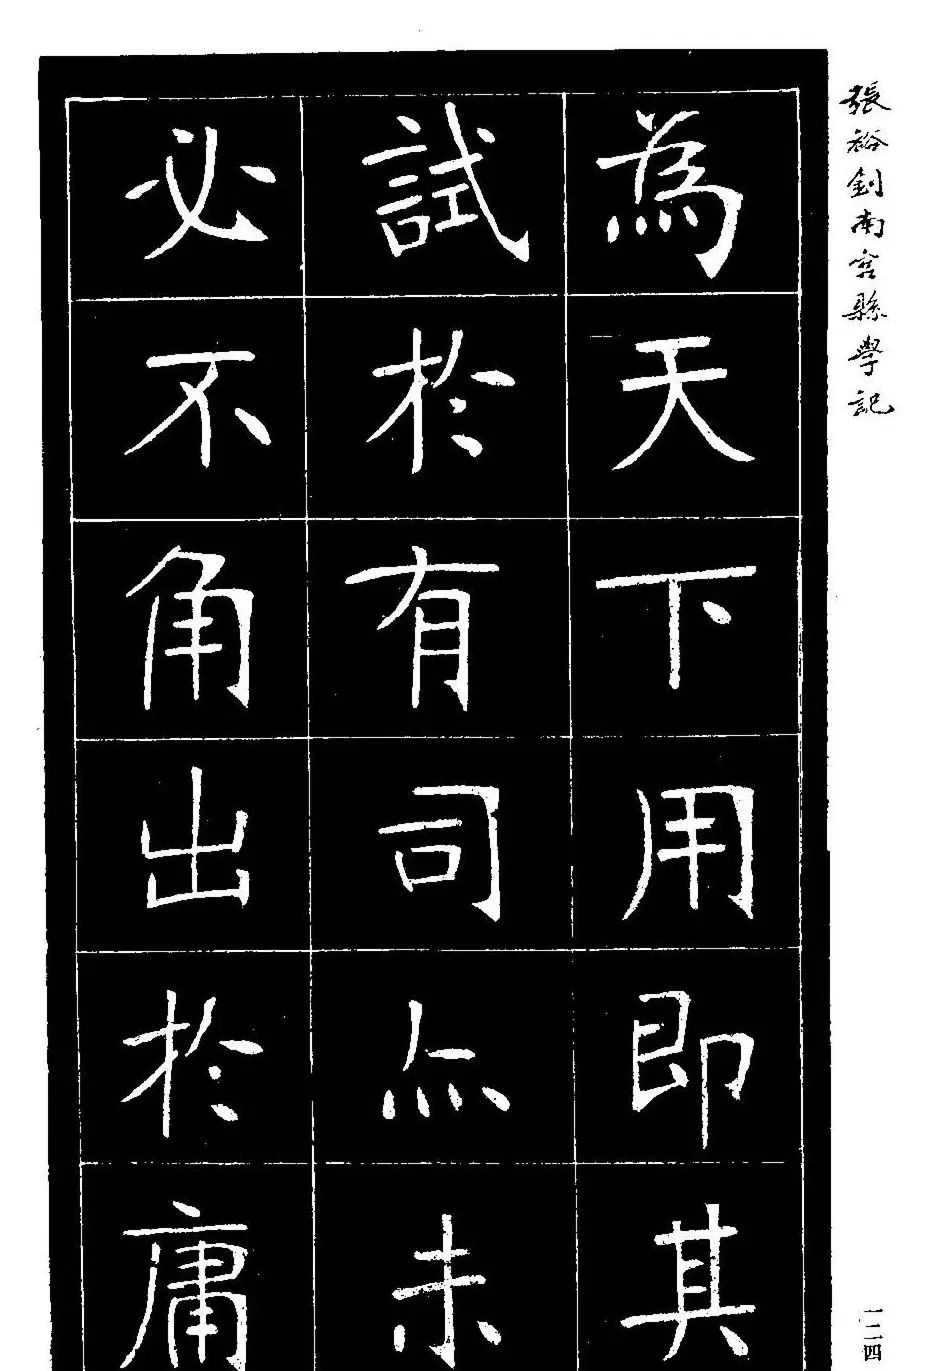 張裕釗南宮縣學記
為天下用即其
試於有司亦未
必不角出於庸
一二四